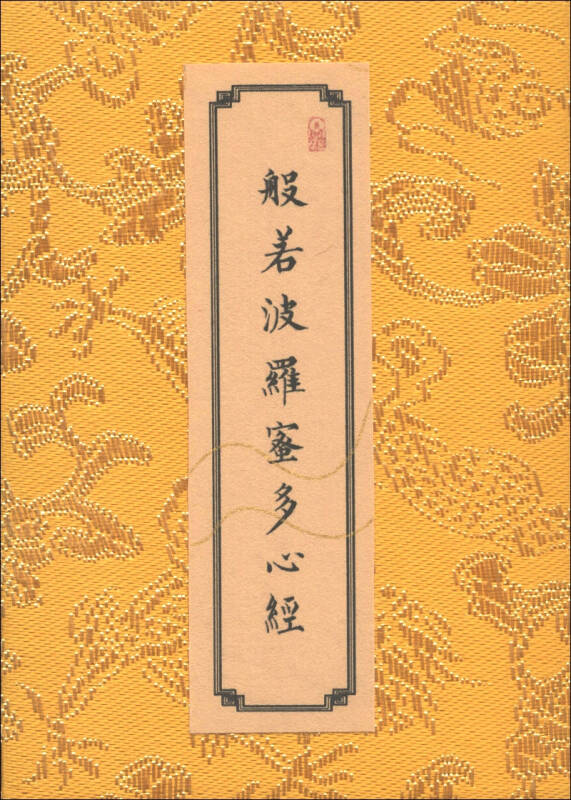 般若波羅蜜多心經